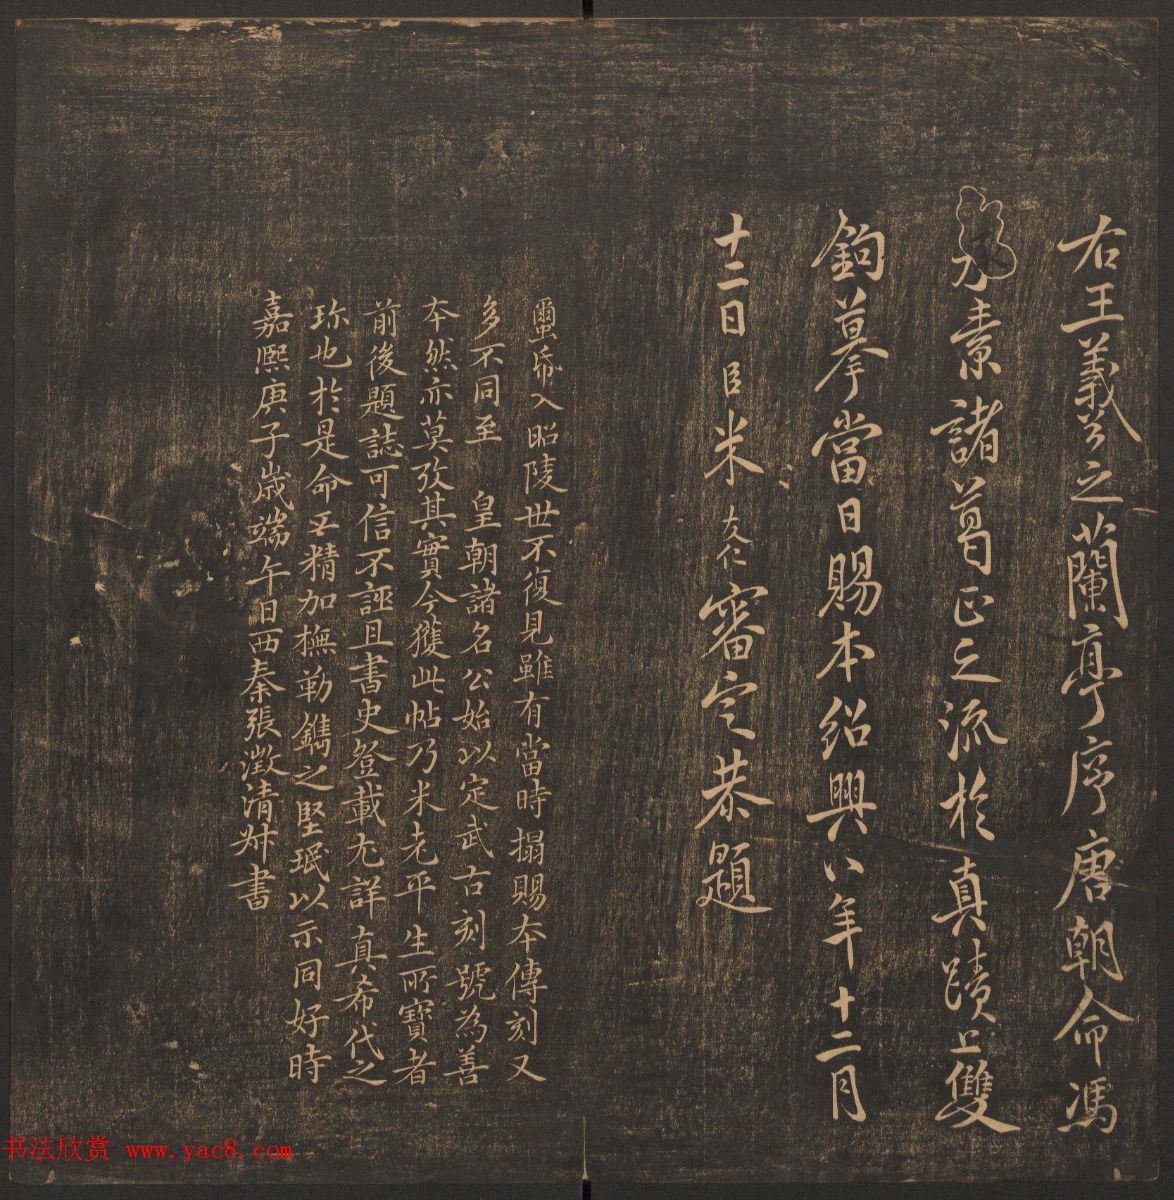 右王羲之蘭亭序唐朝命馮
承素諸葛正之流於真蹟上雙
鉤摹當日賜本紹興八年十二月
十二日臣米友仁審定恭題
璽帋入昭陵世不復見雖有當時搨賜本傳刻又
多不同至 皇朝諸名公始以定武古刻號為善
本然亦莫攷其實今獲此帖乃米老平生所寶者
前後題誌可信不誣且書史登載尤詳真希代之
珎也於是命工精加撫勒鐫之堅珉以示同好時
嘉熙庚子歲端午日西秦張澂清尗書
书法欣赏 www.yac8.com